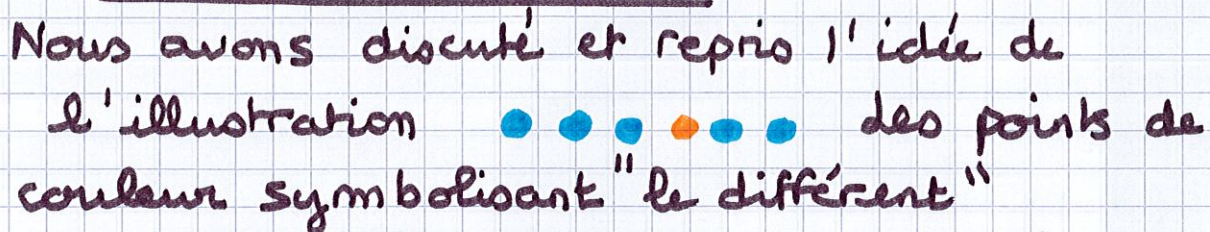 Nous avons discuté et repris l'idée de
l'illustration des points de
couleur symbolisant "le différent"